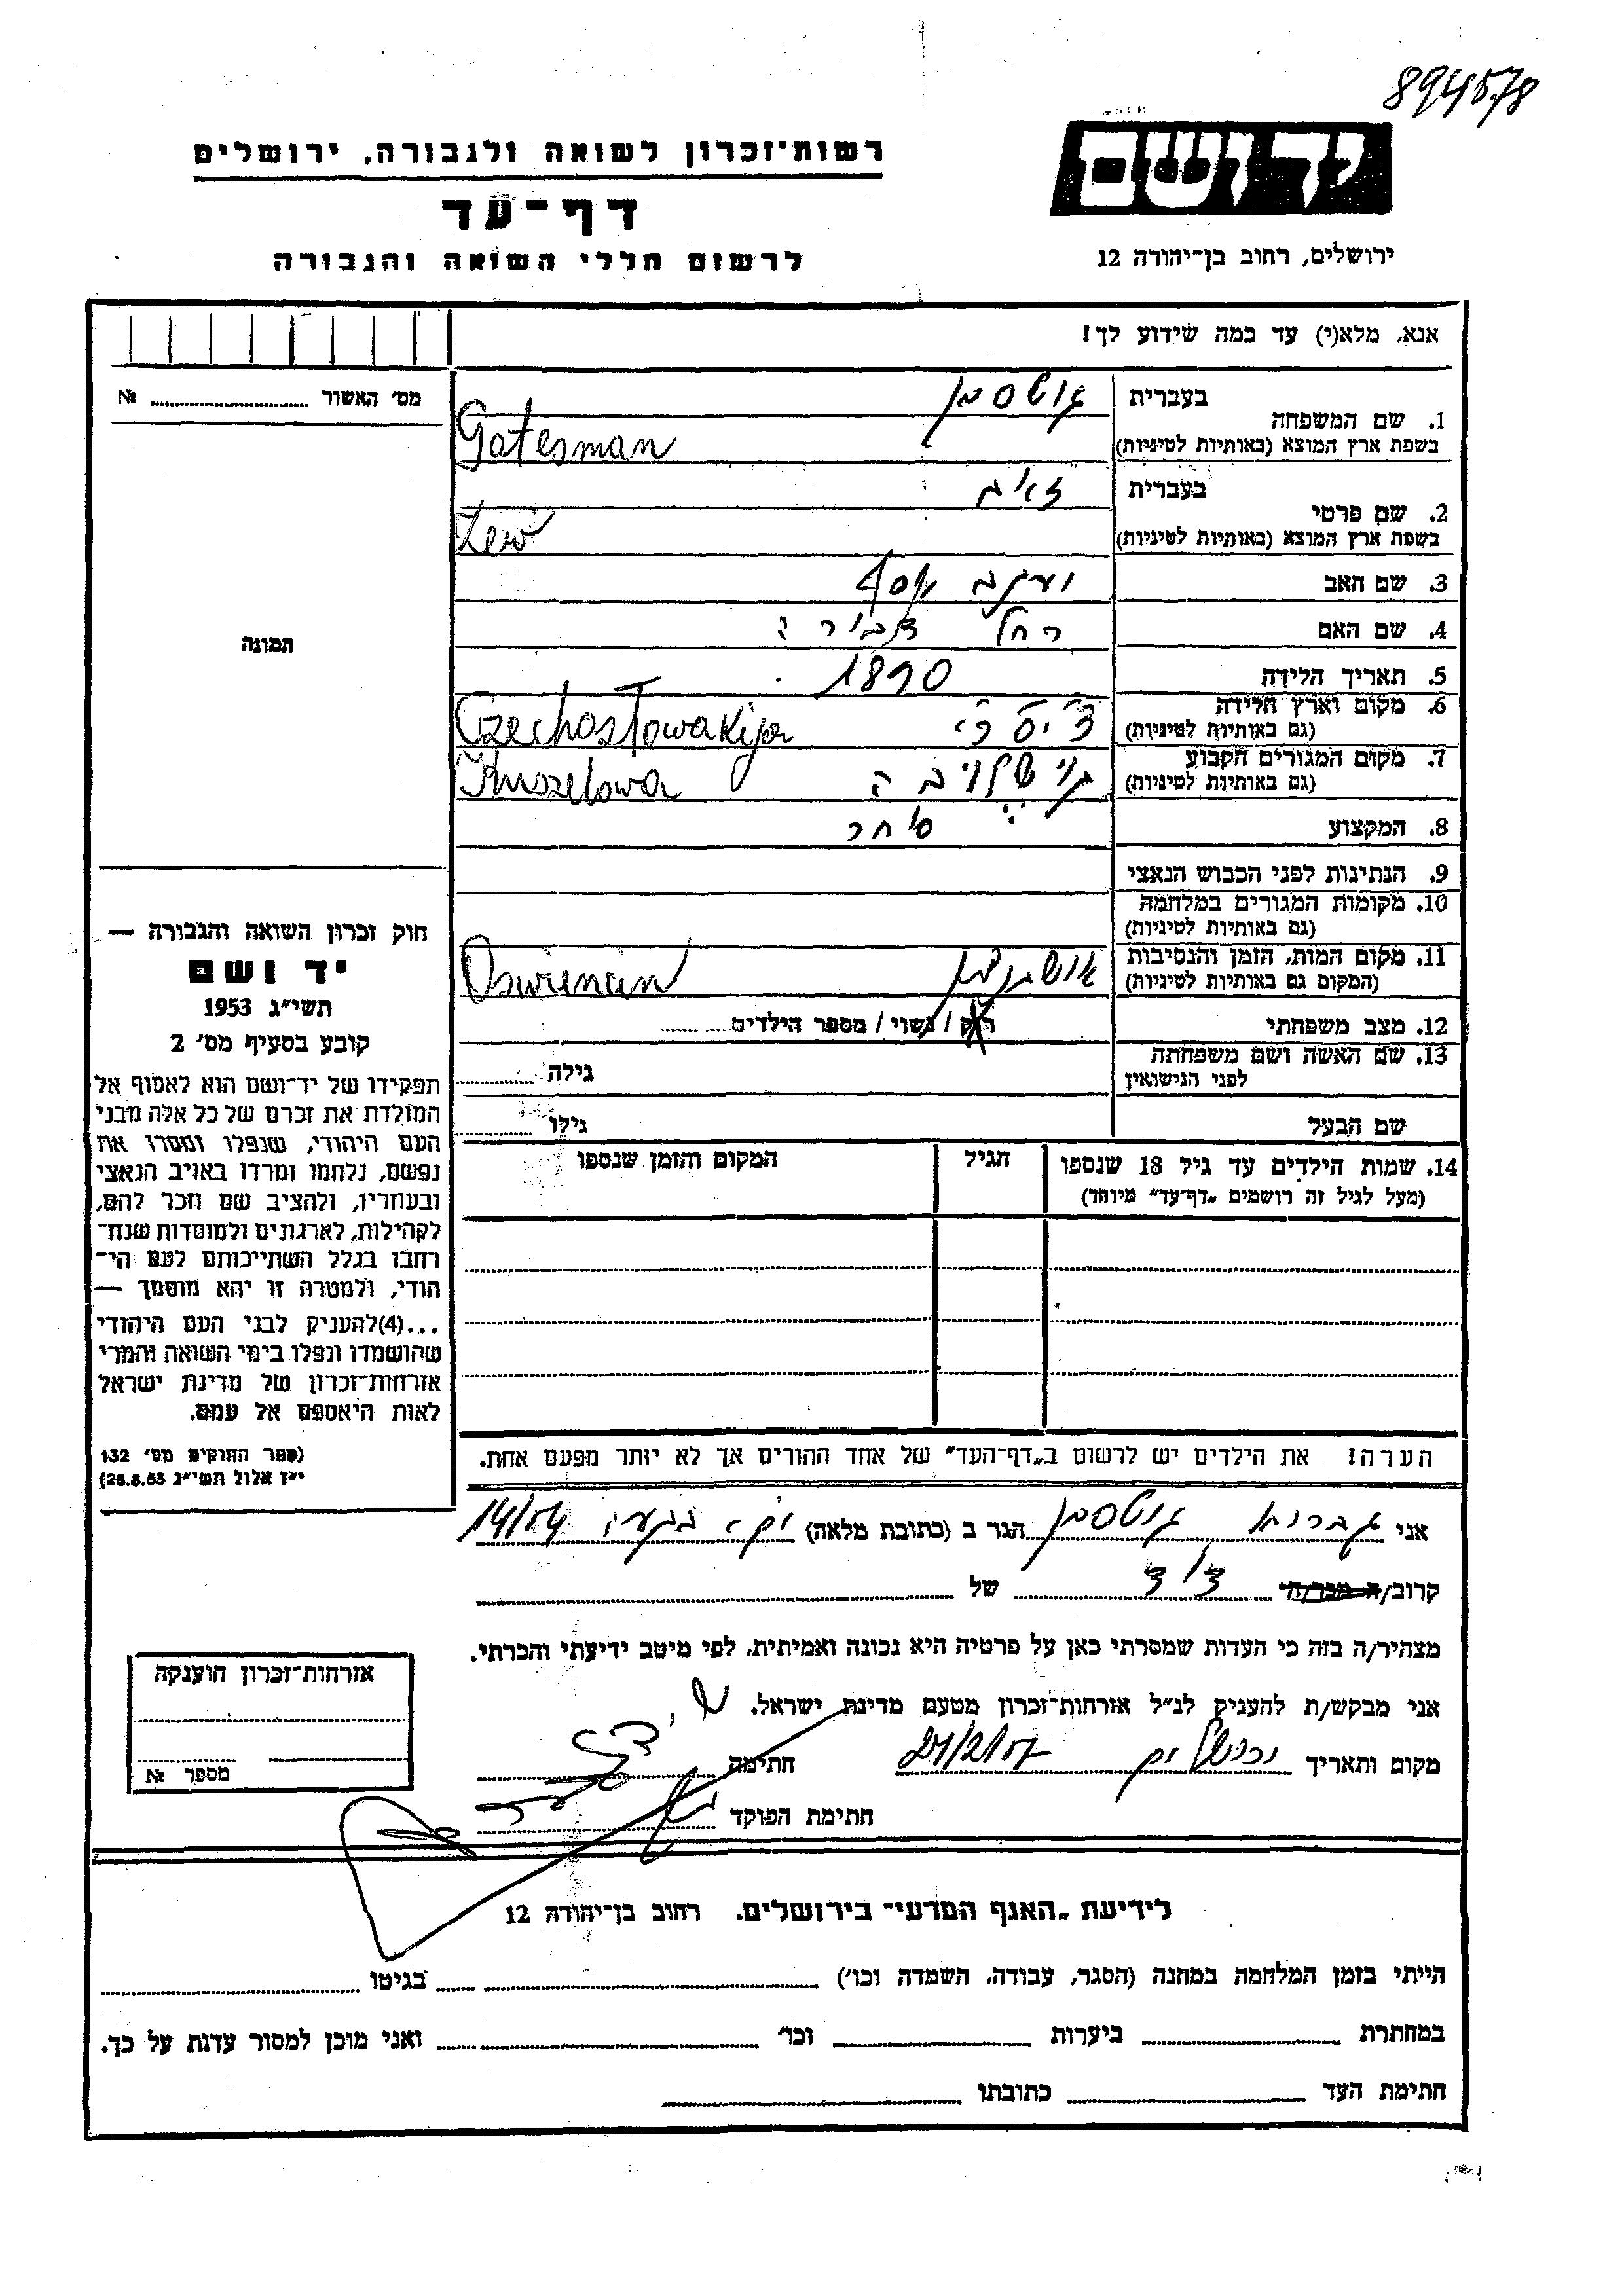 894578
יד ושם
רשות־זכרון לשואה ולגבורה, ירושלים
דף־עד
לרשום חללי השואה והגבורה
ירושלים, רחוב בן־יהודה 12
אנא, מלא(י) עד כמה שידוע לך!
מס׳ האשור № 
1. שם המשפחה
בעברית גוטסמן
בשפת ארץ המוצא (באותיות לטיניות) Gotesman
2. שם פרטי
בעברית זאיב
בשפת ארץ המוצא (באותיות לטיניות) Zew
3. שם האב יעקב יוסף
4. שם האם רחל
5. תאריך הלידה 1890
6. מקום וארץ הלידה
(גם באותיות לטיניות) Czechosłowakija
7. מקום המגורים הקבוע
(גם באותיות לטיניות)
8. המקצוע סוחר
9. הנתינות לפני הכבוש הנאצי
10. מקומות המגורים במלחמה
(גם באותיות לטיניות)
11. מקום המות, הזמן והנסיבות
(המקום גם באותיות לטיניות) Oswiencin
12. מצב משפחתי רוק / נשוי / מספר הילדים
13. שם האשה ושם משפחתה
לפני הנישואין גילה
שם הבעל גילו
14. שמות הילדים עד גיל 18 שנספו הגיל המקום והזמן שנספו
(מעל לגיל זה רושמים „דף־עד” מיוחד)
תמונה
חוק זכרון השואה והגבורה —
יד ושם
תשי״ג 1953
קובע בסעיף מס׳ 2
תפקידו של יד־ושם הוא לאסוף אל
המולדת את זכרם של כל אלה מבני
העם היהודי, שנפלו ומסרו את
נפשם, נלחמו ומרדו באויב הנאצי
ובעוזריו, ולהציב שם וזכר להם,
לקהילות, לארגונים ולמוסדות שנח־
רבו בגלל השתייכותם לעם הי־
הודי, ולמטרה זו יהא מוסמך —
...(4)להעניק לבני העם היהודי
שהושמדו ונפלו בימי השואה והמרי
אזרחות־זכרון של מדינת ישראל
לאות היאספם אל עמם.
(ספר החוקים מס׳ 132
י״ז אלול תשי״ג 28.8.53)
הערה! את הילדים יש לרשום ב„דף־העד” של אחד ההורים אך לא יותר מפעם אחת.
אני גוטסמן הגר ב (כתובת מלאה)
קרוב/ה מכר/ה דוד של
מצהיר/ה בזה כי העדות שמסרתי כאן על פרטיה היא נכונה ואמיתית, לפי מיטב ידיעתי והכרתי.
אני מבקש/ת להעניק לנ״ל אזרחות־זכרון מטעם מדינת ישראל.
מקום ותאריך ירושלים חתימה
חתימת הפוקד
אזרחות־זכרון הוענקה
מספר №
לידיעת „האגף המדעי” בירושלים. רחוב בן־יהודה 12
הייתי בזמן המלחמה במחנה (הסגר, עבודה, השמדה וכו׳) בגיטו
במחתרת ביערות וכו׳ ואני מוכן למסור עדות על כך.
חתימת העד כתובתו